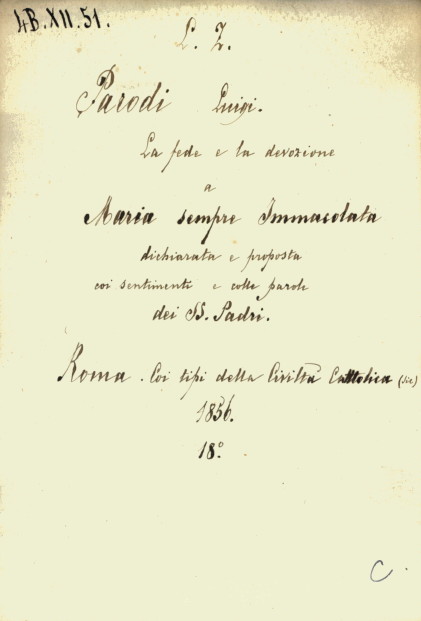 4B.XII.51.
L. Z.
Parodi Luigi.
La fede e la devozione
a
Maria sempre Immacolata
dichiarata e proposta
coi sentimenti e colle parole
dei SS. Padri.
Roma. Coi tipi della Civiltà Cattolica (sic)
1856.
18°
C.